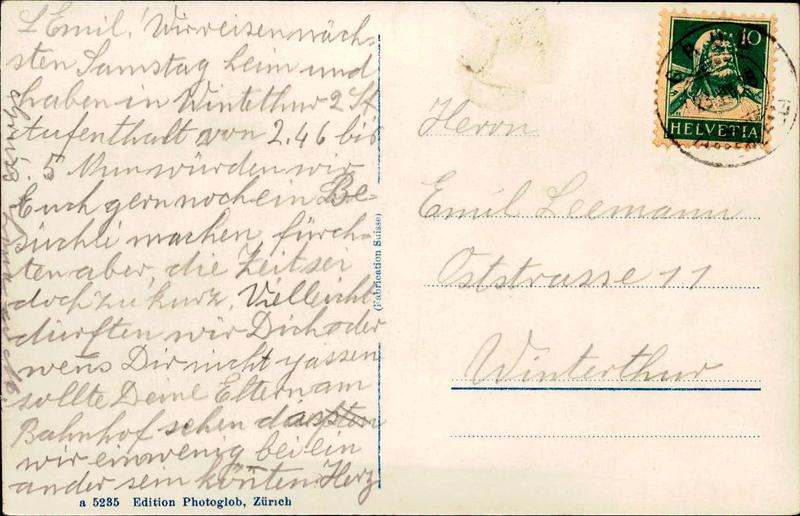 L Emil! Wir reisen näch-
sten Samstag heim und
haben in Winterthur 2 St
Aufenthalt von 2.46 bis
5 Nun würden wir
Euch gern noch ein Be-
süchli machen, fürch-
ten aber, die Zeit sei
doch zu kurz. Vielleicht
dürften wir Dich oder
wens Dir nicht passen
sollte Deine Eltern am
Bahnhof sehen dass
wir einwenig bei ein
ander sein könten. Herz
a 5235 Edition Photoglob, Zürich
(Fabrication Suisse)
10
HELVETIA
Herrn
Emil Leemann
Oststrasse 11
Winterthur